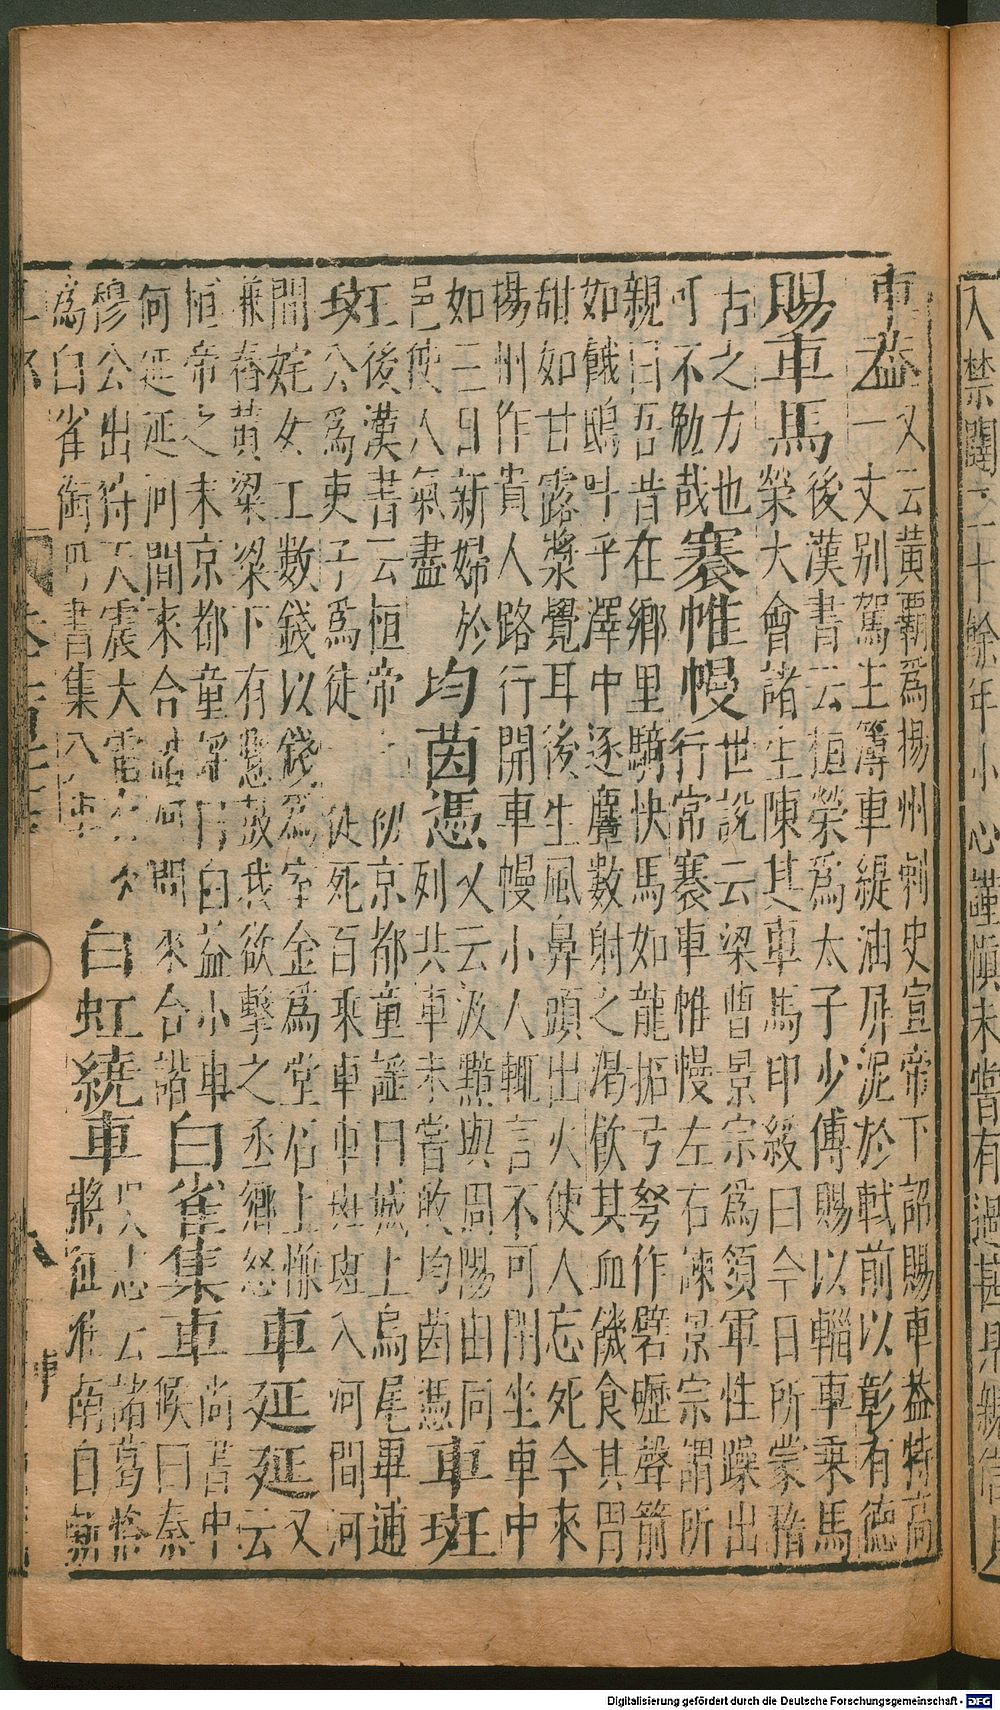 入禁闥二十餘年小心謹慎未嘗有過甚見親信
車葢
又云黃霸為揚州刺史宣帝下詔賜車葢特高
一丈別駕主簿車緹油屏泥於軾前以彰有德
賜車馬
後漢書云桓榮為太子少傅賜以輜車乗馬
榮大會諸生陳其車馬印綬曰今日所蒙稽
古之力也
可不勉哉
褰帷幔
世說云梁曹景宗為須軍性躁出
行常褰車帷幔左右諫景宗謂所
親曰吾昔在鄉里騎快馬如龍拓弓弩作礔礰聲箭
如餓鴟呌乎澤中逐麞數射之渴飲其血饑食其胃
甜如甘露漿覺耳後生風鼻頭出火使人忘死今來
揚州作貴人路行開車幔小人輒言不可閉坐車中
如三日新婦於
邑使人氣盡
均茵憑
又云汲黯與周陽由同
列共車未嘗敢均茵憑
車班班
後漢書云恒帝之初京都童謡曰城上烏尾畢逋
公為吏子為徒一徒死百乗車車班班入河間河
間姹女工數錢以錢為室金為堂石上慊
慊舂黃粱粱下有懸鼓我欲擊之丞鄉怒
車延延
又云
恒帝之末京都童謡曰白葢小車
何延延河間來合諧河間來合諧
白雀集車
尚書中
候曰秦
穆公出狩天震大雷
為白雀銜丹書集公車
白虹繞車
吳志云諸葛恪
將征淮南白虹
車 八